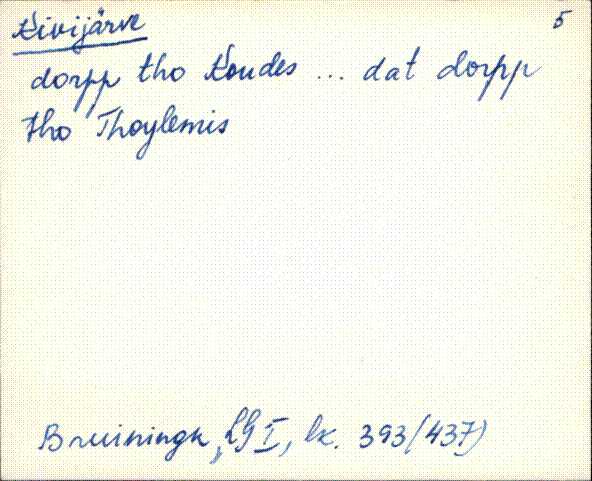 Kivijärve 5
dorpp tho Koudes ... dat dorpp
tho Thoylemis
Bruiningk, LG I, lk. 393 (437)